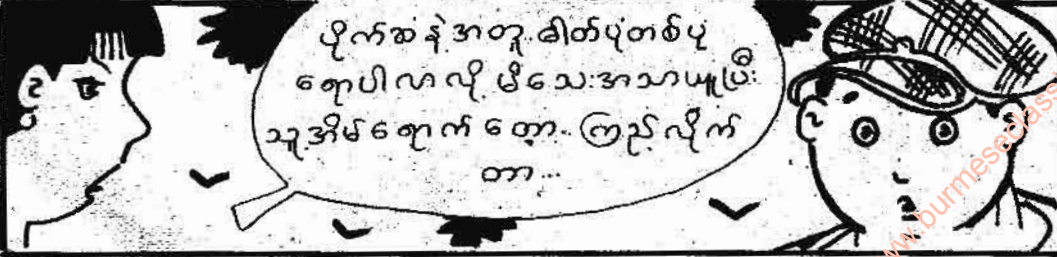 ပိုက်ဆံနဲ့အတူ..ဓါတ်ပုံတစ်ပုံ
ရောပါလာလို့ မိသေးအသာယူပြီး
သူ့အိမ်ရောက်တော့..ကြည့်လိုက်
တာ...
www.burmeseclass